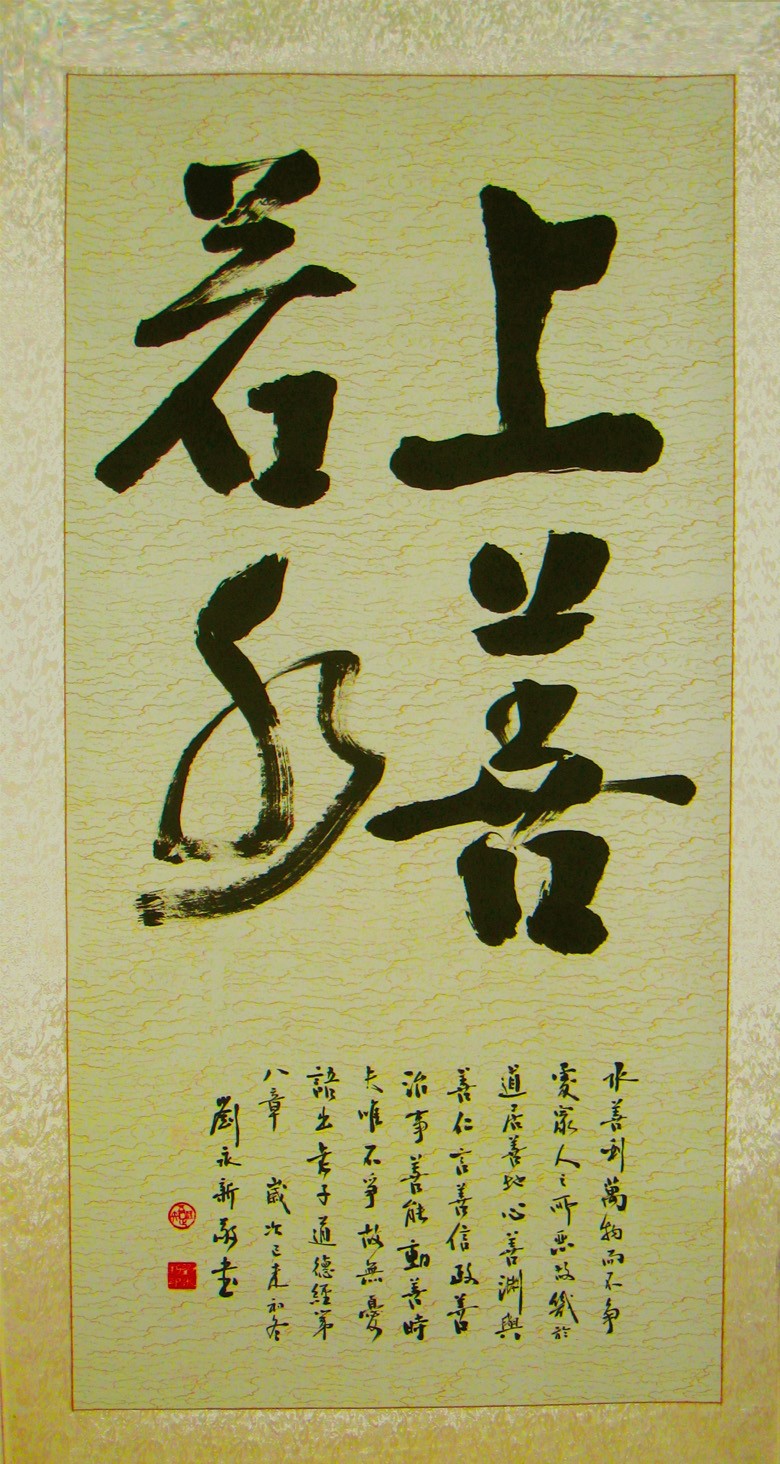 上善
若水
水善利萬物而不爭
處衆人之所惡故幾於
道居善地心善淵與
善仁言善信政善
治事善能動善時
夫唯不爭故無憂
語出老子道德經第
八章 歲次己未初冬
劉永新敬書